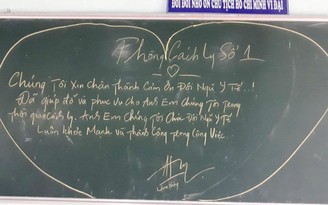 ĐỜI ĐỜI NHỚ ƠN CHỦ TỊCH HỒ CHÍ MINH VĨ ĐẠI
Phòng Cách Ly Số 1
Chúng Tôi Xin Chân Thành Cảm Ơn Đội Ngũ Y Tế..!
Đã giúp đỡ và phục vụ cho Anh Em Chúng Tôi trong
thời gian cách ly. Anh Em Chúng Tôi Chúc Đội Ngũ Y Tế
Luôn khỏe Mạnh và Thành Công trong Công Việc.